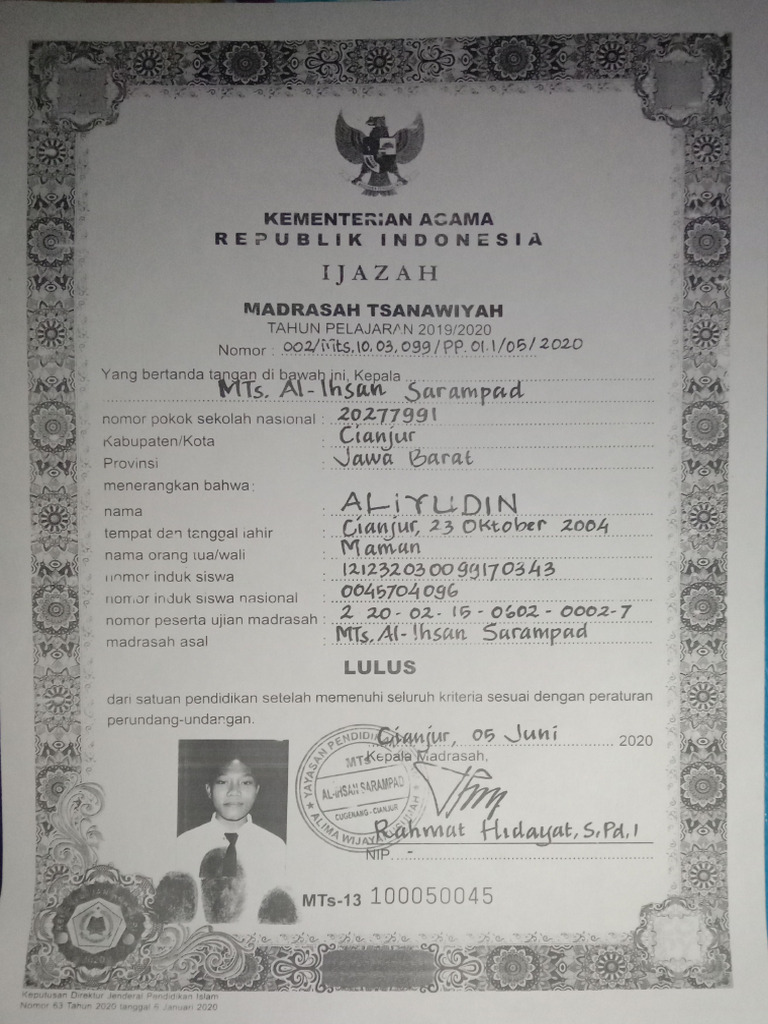 KEMENTERIAN AGAMA
REPUBLIK INDONESIA
IJAZAH
MADRASAH TSANAWIYAH
TAHUN PELAJARAN 2019/2020
Nomor : 002/Mts.10.03.099/PP.01.1/05/2020
Yang bertanda tangan di bawah ini, Kepala
MTs. Al-Ihsan Sarampad
nomor pokok sekolah nasional : 20277991
Kabupaten/Kota : Cianjur
Provinsi : Jawa Barat
menerangkan bahwa:
nama : ALiYUDIN
tempat dan tanggal lahir : Cianjur, 23 Oktober 2004
nama orang tua/wali : Maman
nomor induk siswa : 121232030099170343
nomor induk siswa nasional : 0045704096
nomor peserta ujian madrasah : 2 20-02-15-0602-0002-7
madrasah asal : MTs. Al-Ihsan Sarampad
LULUS
dari satuan pendidikan setelah memenuhi seluruh kriteria sesuai dengan peraturan
perundang-undangan.
Cianjur, 05 Juni 2020
Kepala Madrasah,
YAYASAN PENDIDIKAN
MTs
AL-IHSAN SARAMPAD
CUGENANG - CIANJUR
Rahmat Hidayat, S.Pd.I
NIP. -
MTs-13 100050045
Keputusan Direktur Jenderal Pendidikan Islam
Nomor 63 Tahun 2020 tanggal 6 Januari 2020